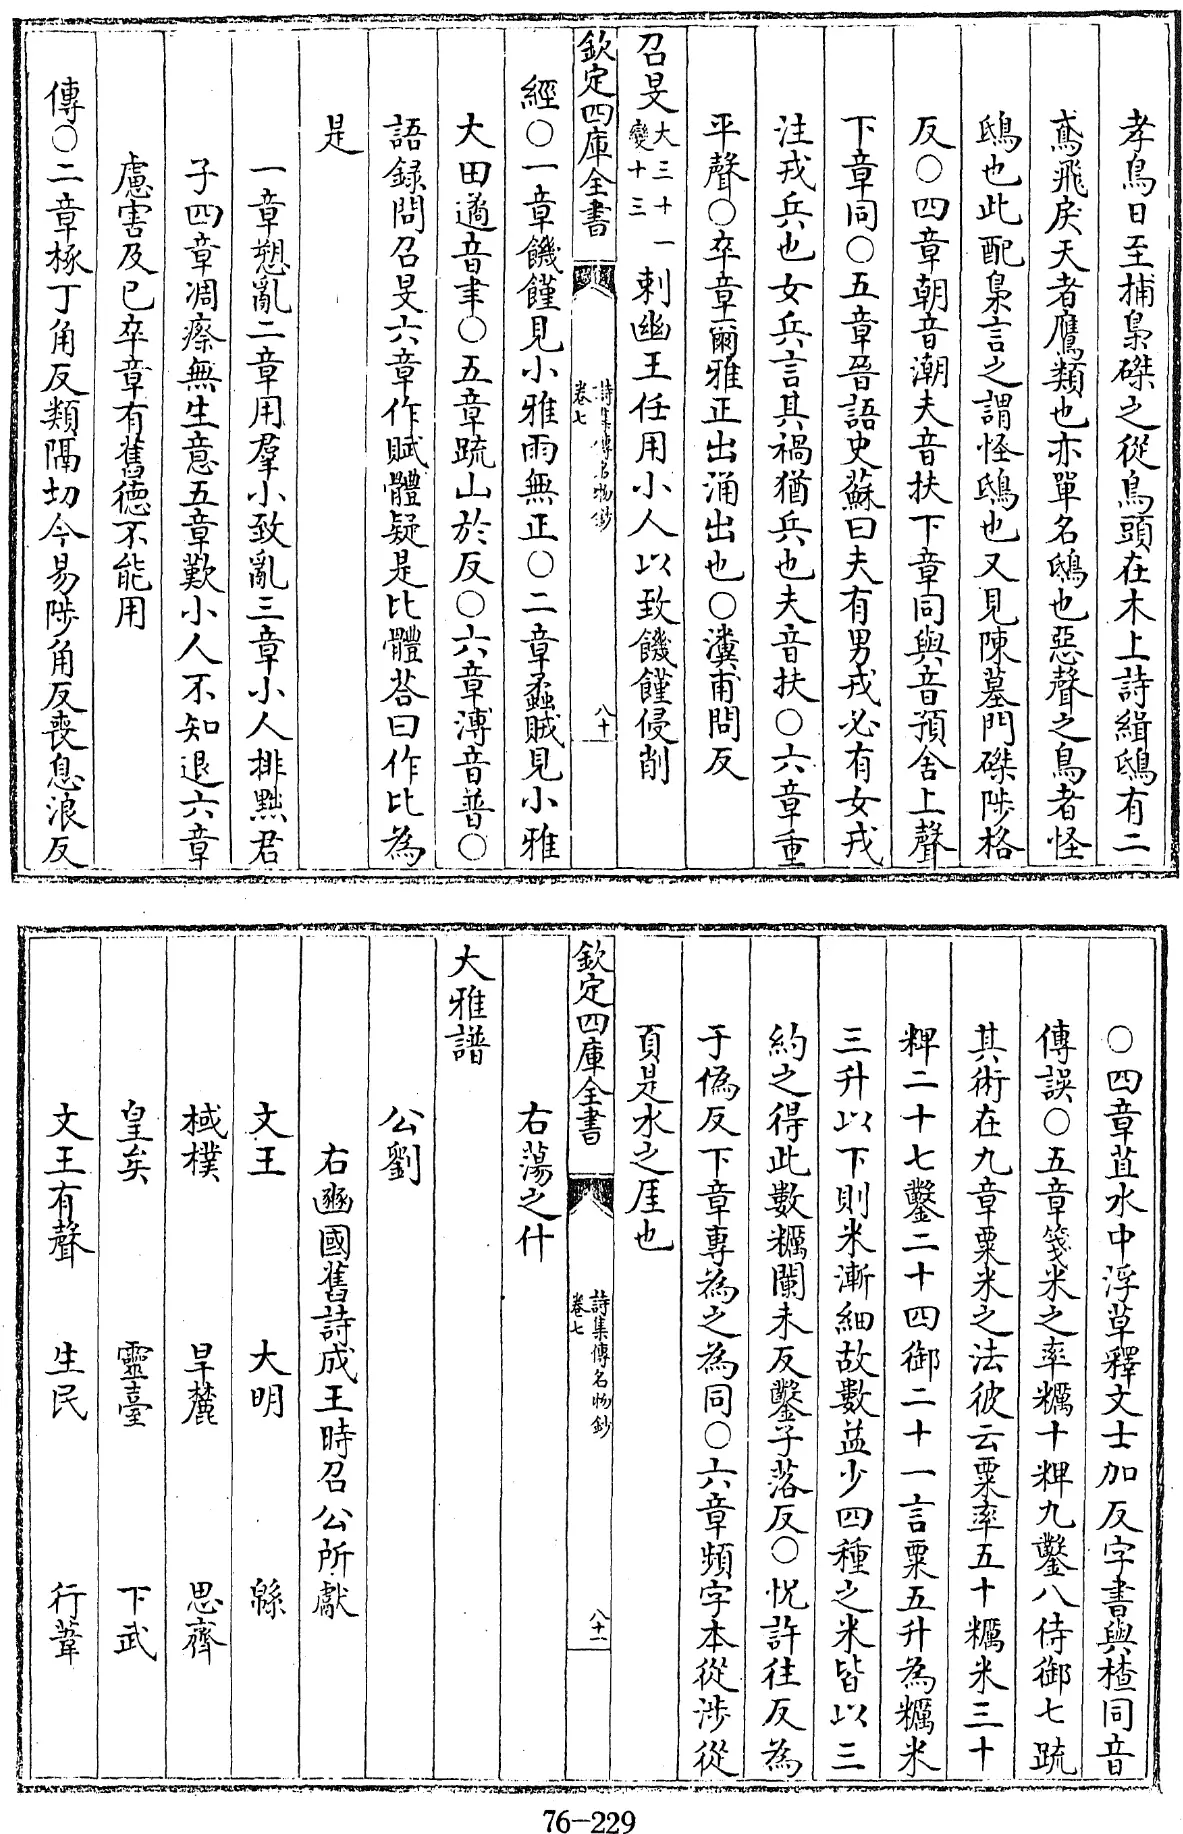 孝鳥日至捕梟磔之從鳥頭在木上詩緝鴟有二
鳶飛戾天者鷹類也亦單名鴟也惡聲之鳥者怪
鴟也此配梟言之謂怪鴟也又見陳墓門磔陟格
反○四章朝音潮夫音扶下章同與音預舍上聲
下章同○五章晉語史蘇曰夫有男戎必有女戎
注戎兵也女兵言其禍猶兵也夫音扶○六章重
平聲○卒章爾雅正出涌出也○瀵甫問反
召旻大三十一變十三 刺幽王任用小人以致饑饉侵削
欽定四庫全書 詩集傳名物鈔 卷七 八十
經○一章饑饉見小雅雨無正○二章蟊賊見小雅
大田遹音聿○五章疏山於反○六章溥音普○
語錄問召旻六章作賦體疑是比體荅曰作比為
是
一章愬亂二章用羣小致亂三章小人排黜君
子四章凋瘵無生意五章歎小人不知退六章
慮害及已卒章有舊德不能用
傳○二章椓丁角反類隔切今易陟角反喪息浪反
○四章苴水中浮草釋文士加反字書與楂同音
傳誤○五章箋米之率糲十粺九鑿八侍御七疏
其術在九章粟米之法彼云粟率五十糲米三十
粺二十七鑿二十四御二十一言粟五升為糲米
三升以下則米漸細故數益少四種之米皆以三
約之得此數糲闌未反鑿子落反○怳許往反為
于偽反下章專為之為同○六章頻字本從涉從
頁是水之厓也
欽定四庫全書 詩集傳名物鈔 卷七 八十一
右蕩之什
大雅譜
公劉
右豳國舊詩成王時召公所獻
文王 大明 緜
棫樸 旱麓 思齊
皇矣 靈臺 下武
文王有聲 生民 行葦
76-229